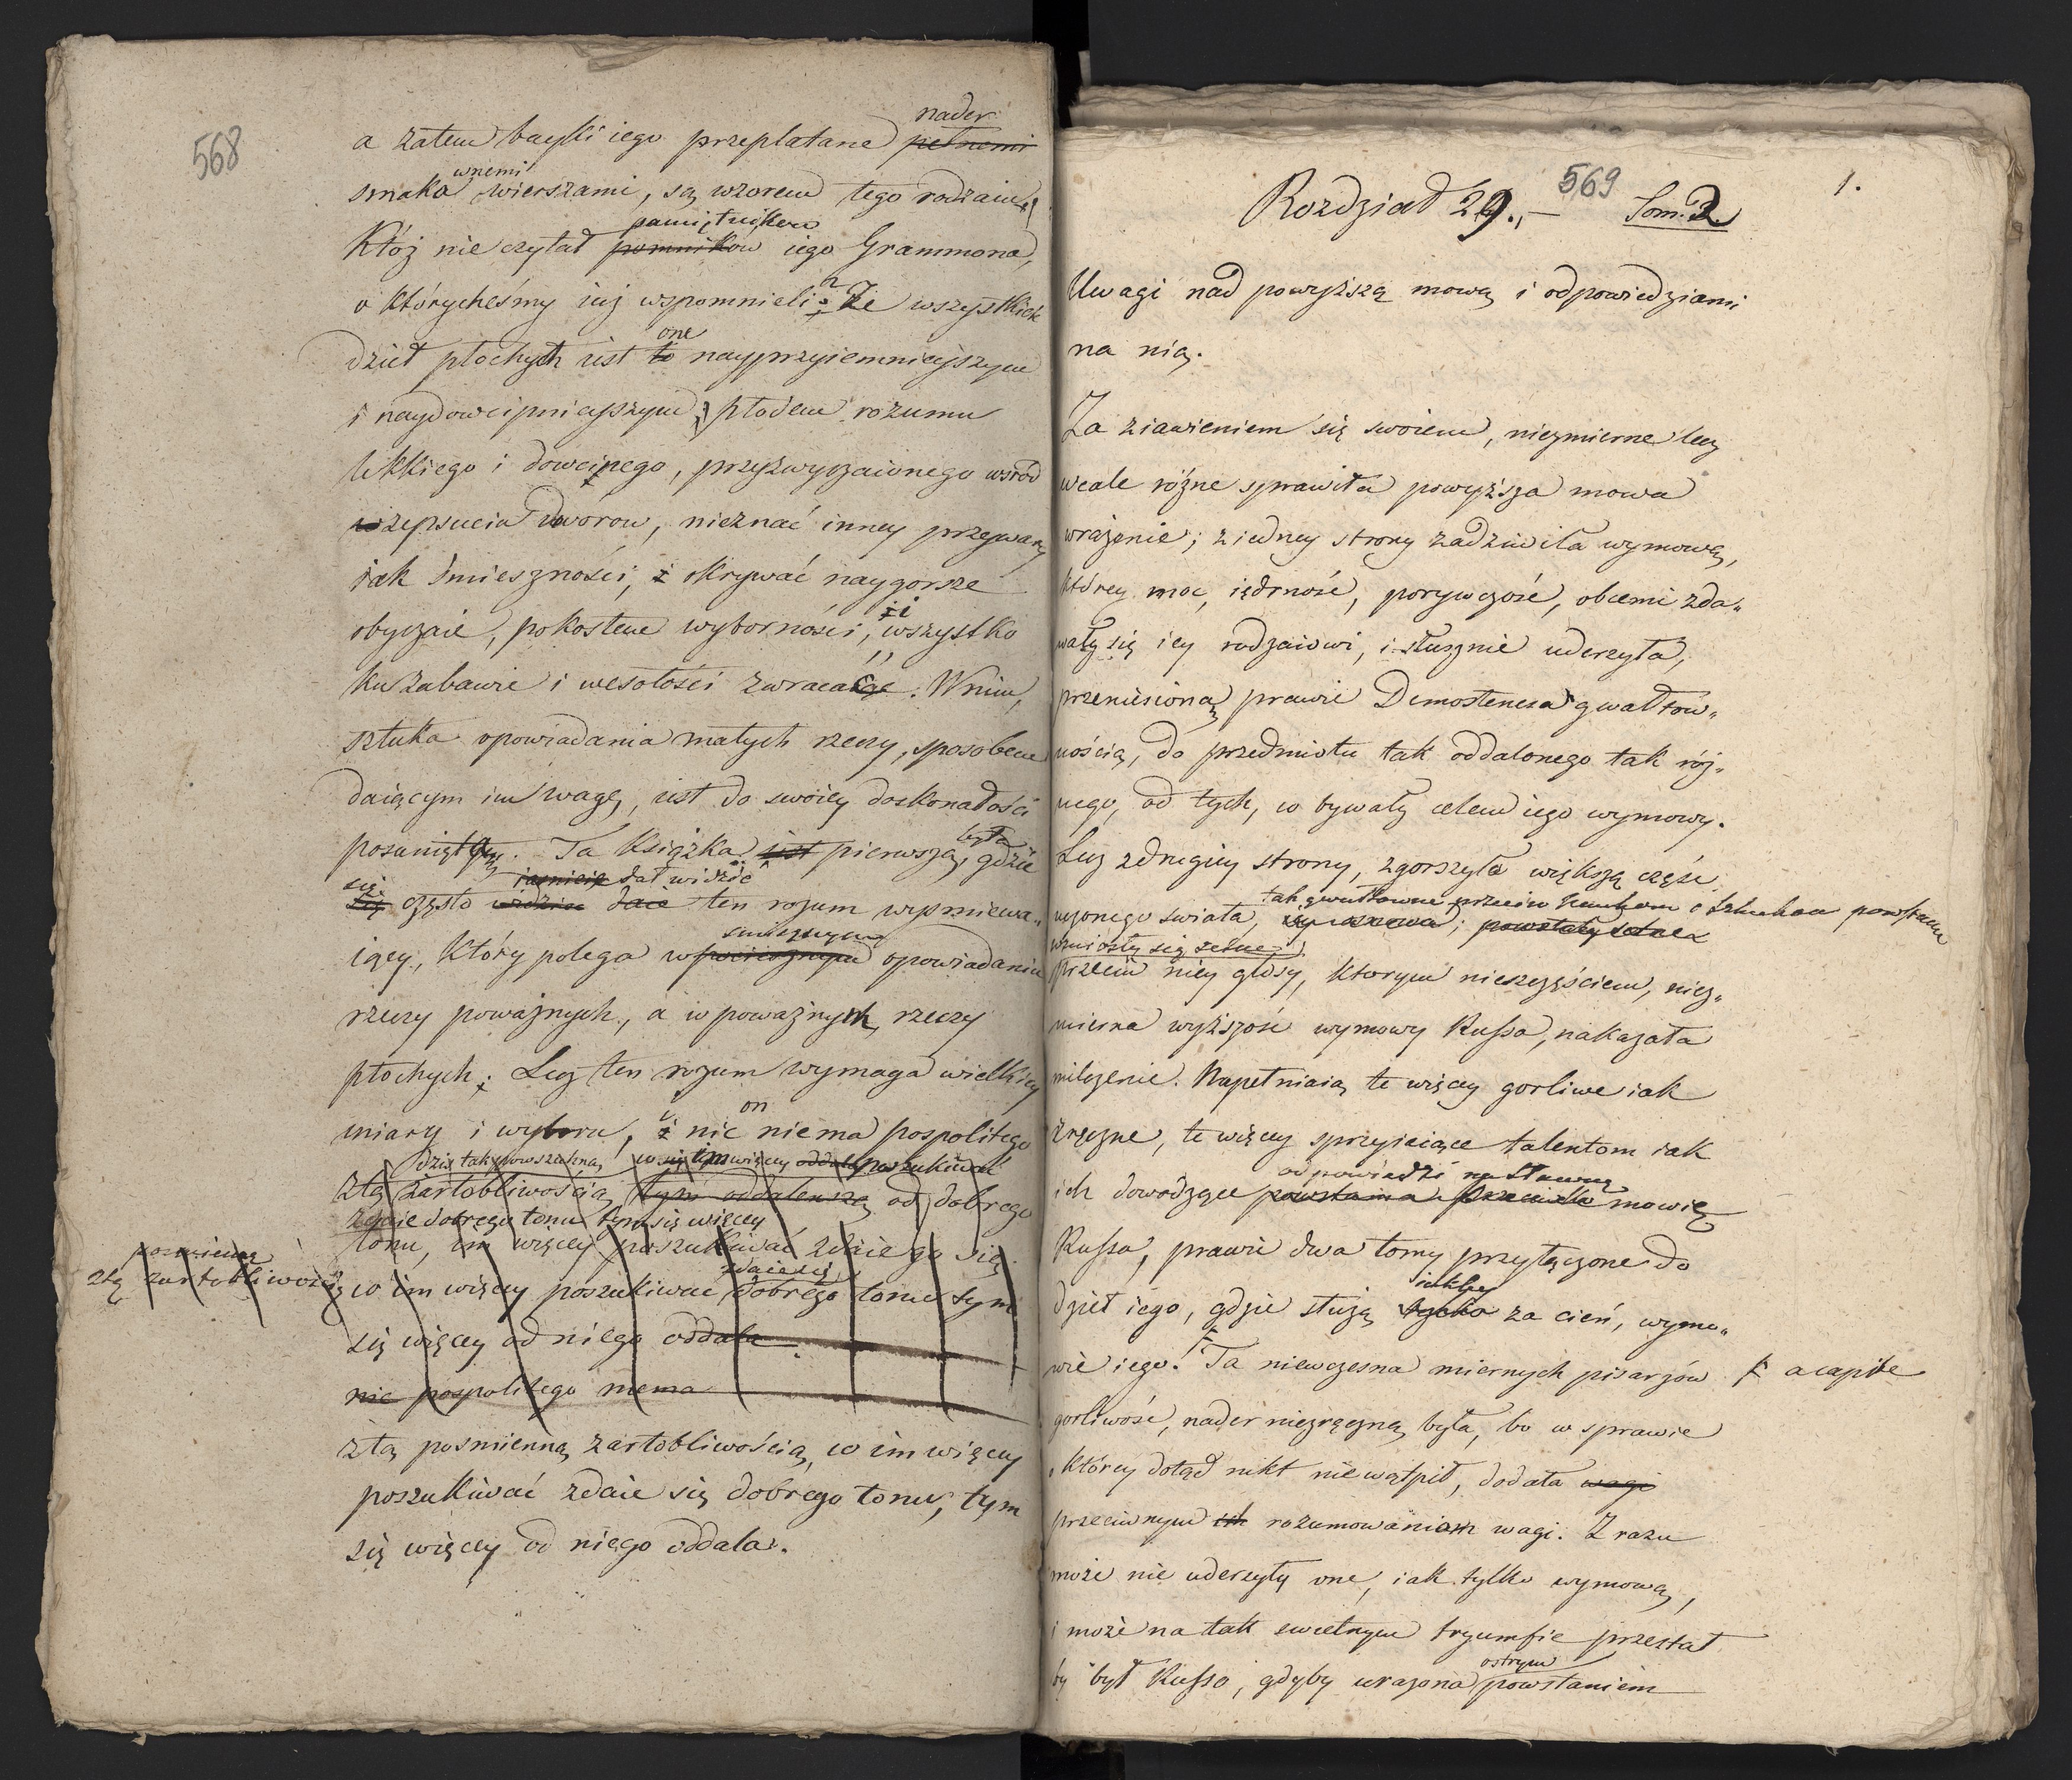 568
nader
a zatem bayki iego przeplatane pełnemi
wnemi
smaka wierszami, są wzorem tego rodzaiu.
pamiętników
Któż nie czytał pomników iego Grammona,
o którycheśmy iuż wspomnieli? Ze wszystkich
one
dzieł płochych iest to nayprzyiemnieyszym
i naydowcipnieyszym płodem rozumu
lekkiego i dowcipnego, przyzwyczaionego wsrod
zepsucia dworow, nieznać inney przywary
iak śmieszności, i okrywać naygorsze
obyczaie, pokostem wyborności, i wszystko
ku zabawie i wesołości zwracać. W nim,
sztuka opowiadania małych rzeczy, sposobem
daiącym im wagę, iest do swoiey doskonałości
była
posuniętą. Ta Książka iest pierwszą, gdzie
się dał widzieć
się często daie ten rozum wyśmiewa„
smiesznym
iący, który polega w opowiadaniu
rzeczy poważnych, a w poważnych, rzeczy
płochych. Lecz ten rozum wymaga wielkiey
on
miary i wyboru, i nic niema pospolitego
dziś tak powszechną, co się tym więcey oddala poszukiwać
złą żartobliwością, tym oddaleńszą od dobrego
zdaie dobrego tonu tym się więcey
tonu, im więcey poszukiwać zdaie go się
posmienną
złą żartobliwością
zdaie się
co im więcey poszukiwać dobrego tonu tym
się więcey od niego oddala
nic pospolitego niema
złą posmienną żartobliwością, co im więcey
poszukiwać zdaie się dobrego tonu, tym
się więcey od niego oddala.
569
1.
Rozdział 29. — Tom. 2.
Uwagi nad powyższą mową i odpowiedziami
na nią.
Za ziawieniem się swoiem, niezmierne lecz
wcale różne sprawiła powyższa mowa
wrażenie; z iedney strony zadziwiła wymową,
którey moc, iędrność, porywczość, obcemi zda„
wały się iey rodzaiowi, i słusznie uderzyła,
przeniesioną prawie Demostenesa gwałtow„
nością, do przedmiotu tak oddalonego tak róż„
nego, od tych, co bywały celem iego wymowy.
Lecz z drugiey strony, zgorszyła większą część
tak gwałtowne przeciw Naukom i Sztukom powstanie
uczonego swiata, powstały setne
wzniosły się setne
przeciw niey głosy, którym nieszczęściem, niez„
mierna wyższość wymowy Russa, nakazała
milczenie. Napełniaią te więcey gorliwe iak
zręczne, te więcey sprzyiaiące talentom iak
odpowiedzi na sławną
ich dowodzące powstania przeciwko mowie
Russa, prawie dwa tomy przyłączone do
iakby
dzieł iego, gdzie służą tylko za cień, wymo„
wie iego. Ta niewczesna miernych pisarzów
a capite
gorliwość, nader niezręczną była, bo w sprawie
o którey dotąd nikt niewątpił, dodała wagi
przeciwnym ich rozumowaniom wagi. Z razu
może nie uderzyły one, iak tylko wymową,
i może na tak swietnym tryumfie przestał
ostrym
by był Russo, gdyby urażona powstaniem